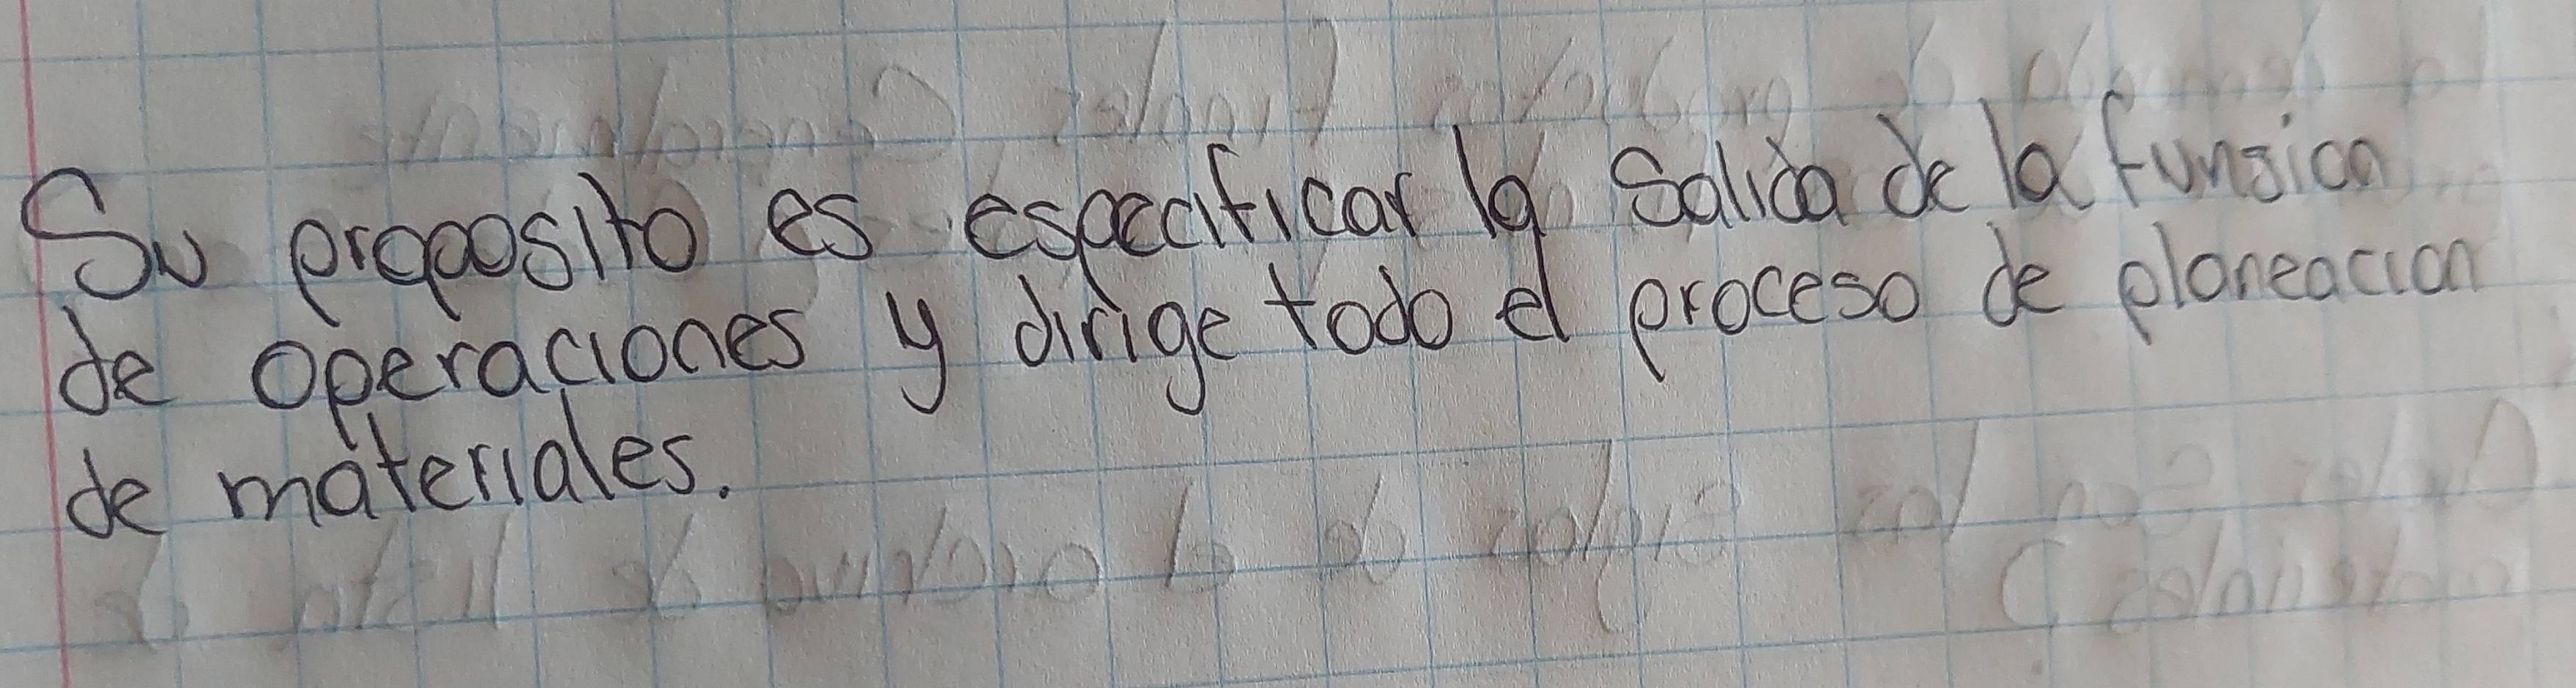 Su proposito es especificar la salida de la funsion
de operaciones y dirige todo el proceso de planeacion
de materiales.